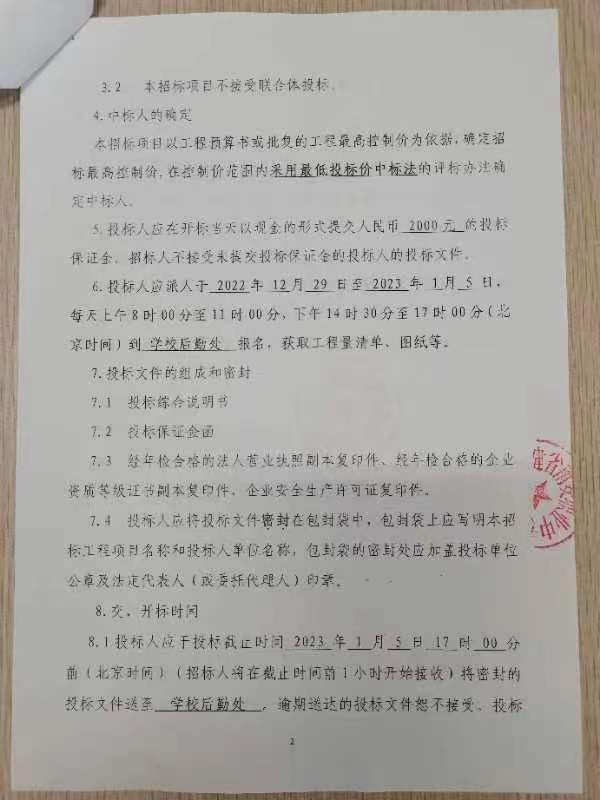 3.2 本招标项目不接受联合体投标。
4.中标人的确定
本招标项目以工程预算书或批复的工程最高控制价为依据,确定招
标最高控制价,在控制价范围内采用最低投标价中标法的评标办法确
定中标人。
5.投标人应在开标当天以现金的形式提交人民币 2000元 的投标
保证金。招标人不接受未提交投标保证金的投标人的投标文件。
6.投标人应派人于 2022 年 12 月 29 日至 2023 年 1 月 5 日,
每天上午8时00分至11时00分,下午14时30分至17时00分(北
京时间)到 学校后勤处 报名,获取工程量清单、图纸等。
7.投标文件的组成和密封
7.1 投标综合说明书
7.2 投标保证金函
7.3 经年检合格的法人营业执照副本复印件、经年检合格的企业
资质等级证书副本复印件、企业安全生产许可证复印件。
7.4 投标人应将投标文件密封在包封袋中,包封袋上应写明本招
标工程项目名称和投标人单位名称,包封袋的密封处应加盖投标单位
公章及法定代表人(或委托代理人)印章。
8.交、开标时间
8.1投标人应于投标截止时间 2023 年 1 月 5 日 17 时 00 分
前(北京时间)(招标人将在截止时间前1小时开始接收)将密封的
投标文件送至 学校后勤处 。逾期送达的投标文件恕不接受。投标
2